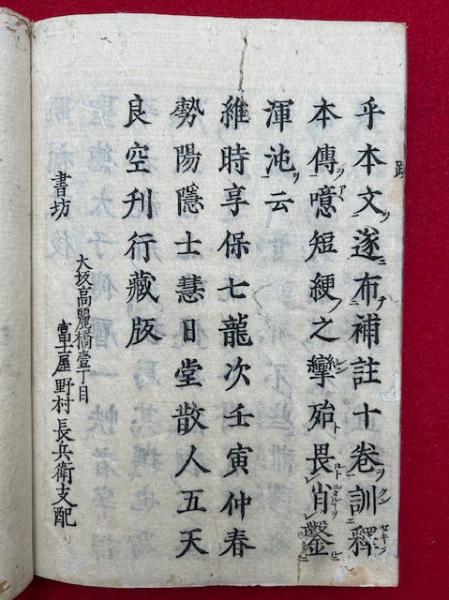 乎本文遂布補註十卷訓釋
本傳噫短綆之攣殆畏肖鑿
渾沌云
維時享保七龍次壬寅仲春
勢陽隱士慧日堂散人五天
良空刊行藏版
書坊
大坂高麗橋壹丁目
富士屋野村長兵衛支配